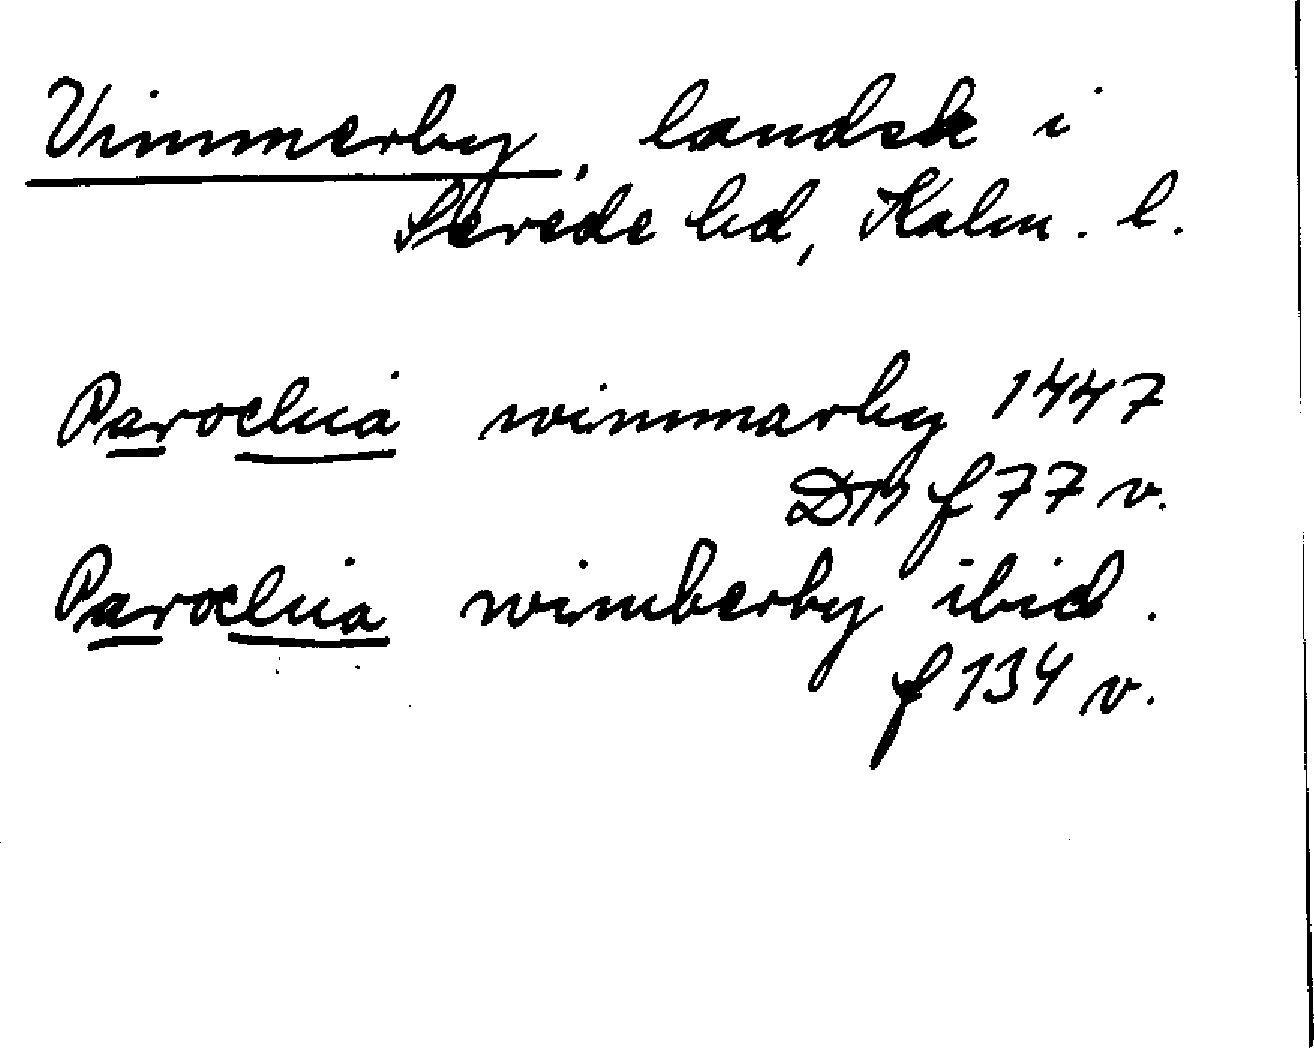 Vimmerby, landsk i
Sevede hd, Kalm. l.
Parochia wimmarby 1447
DB f 77 v.
Parochia wimberby ibid.
f 134 v.